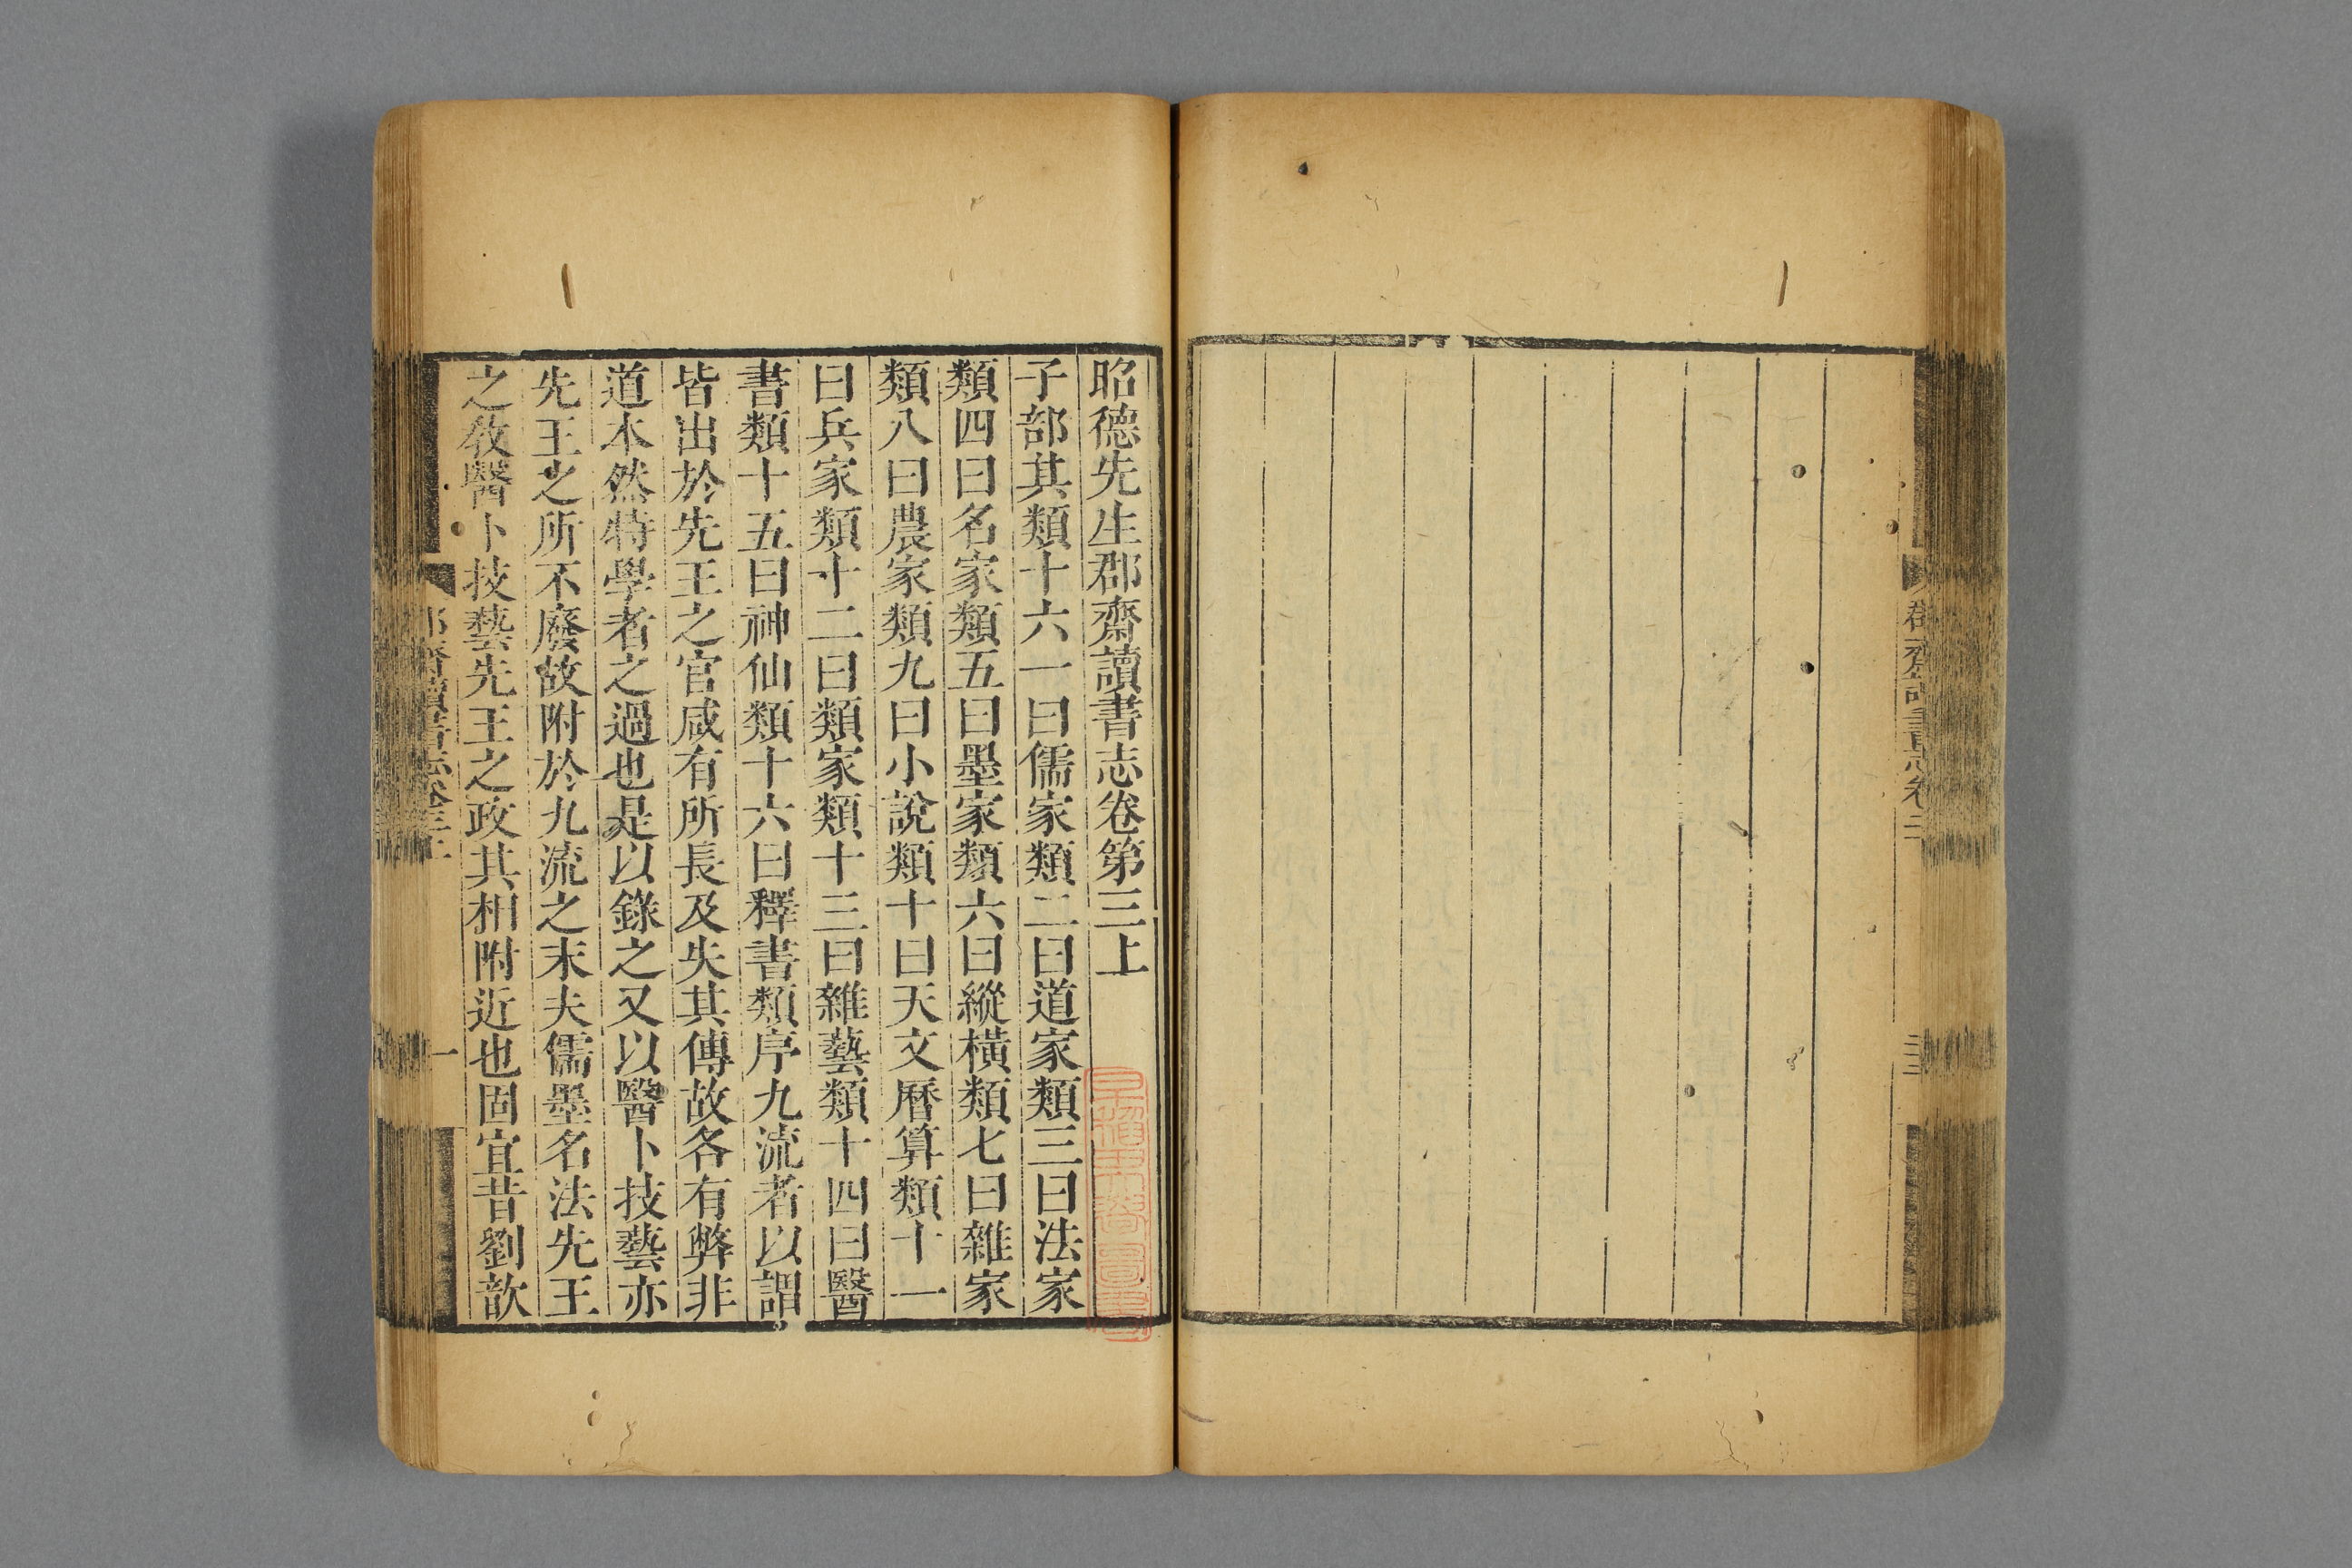 郡齋讀書志卷二
昭德先生郡齋讀書志卷第三上
子部其類十六一曰儒家類二曰道家類三曰法家
類四曰名家類五曰墨家類六曰縱橫類七曰雜家
類八曰農家類九曰小說類十曰天文曆算類十一
曰兵家類十二曰類家類十三曰雜藝類十四曰醫
書類十五曰神仙類十六曰釋書類序九流者以謂
皆出於先王之官咸有所長及失其傳故各有弊非
道本然特學者之過也是以錄之又以醫卜技藝亦
先王之所不廢故附於九流之末夫儒墨名法先王
之敎醫卜技藝先王之政其相附近也固宜昔劉歆
郡齋讀書志卷三上
一